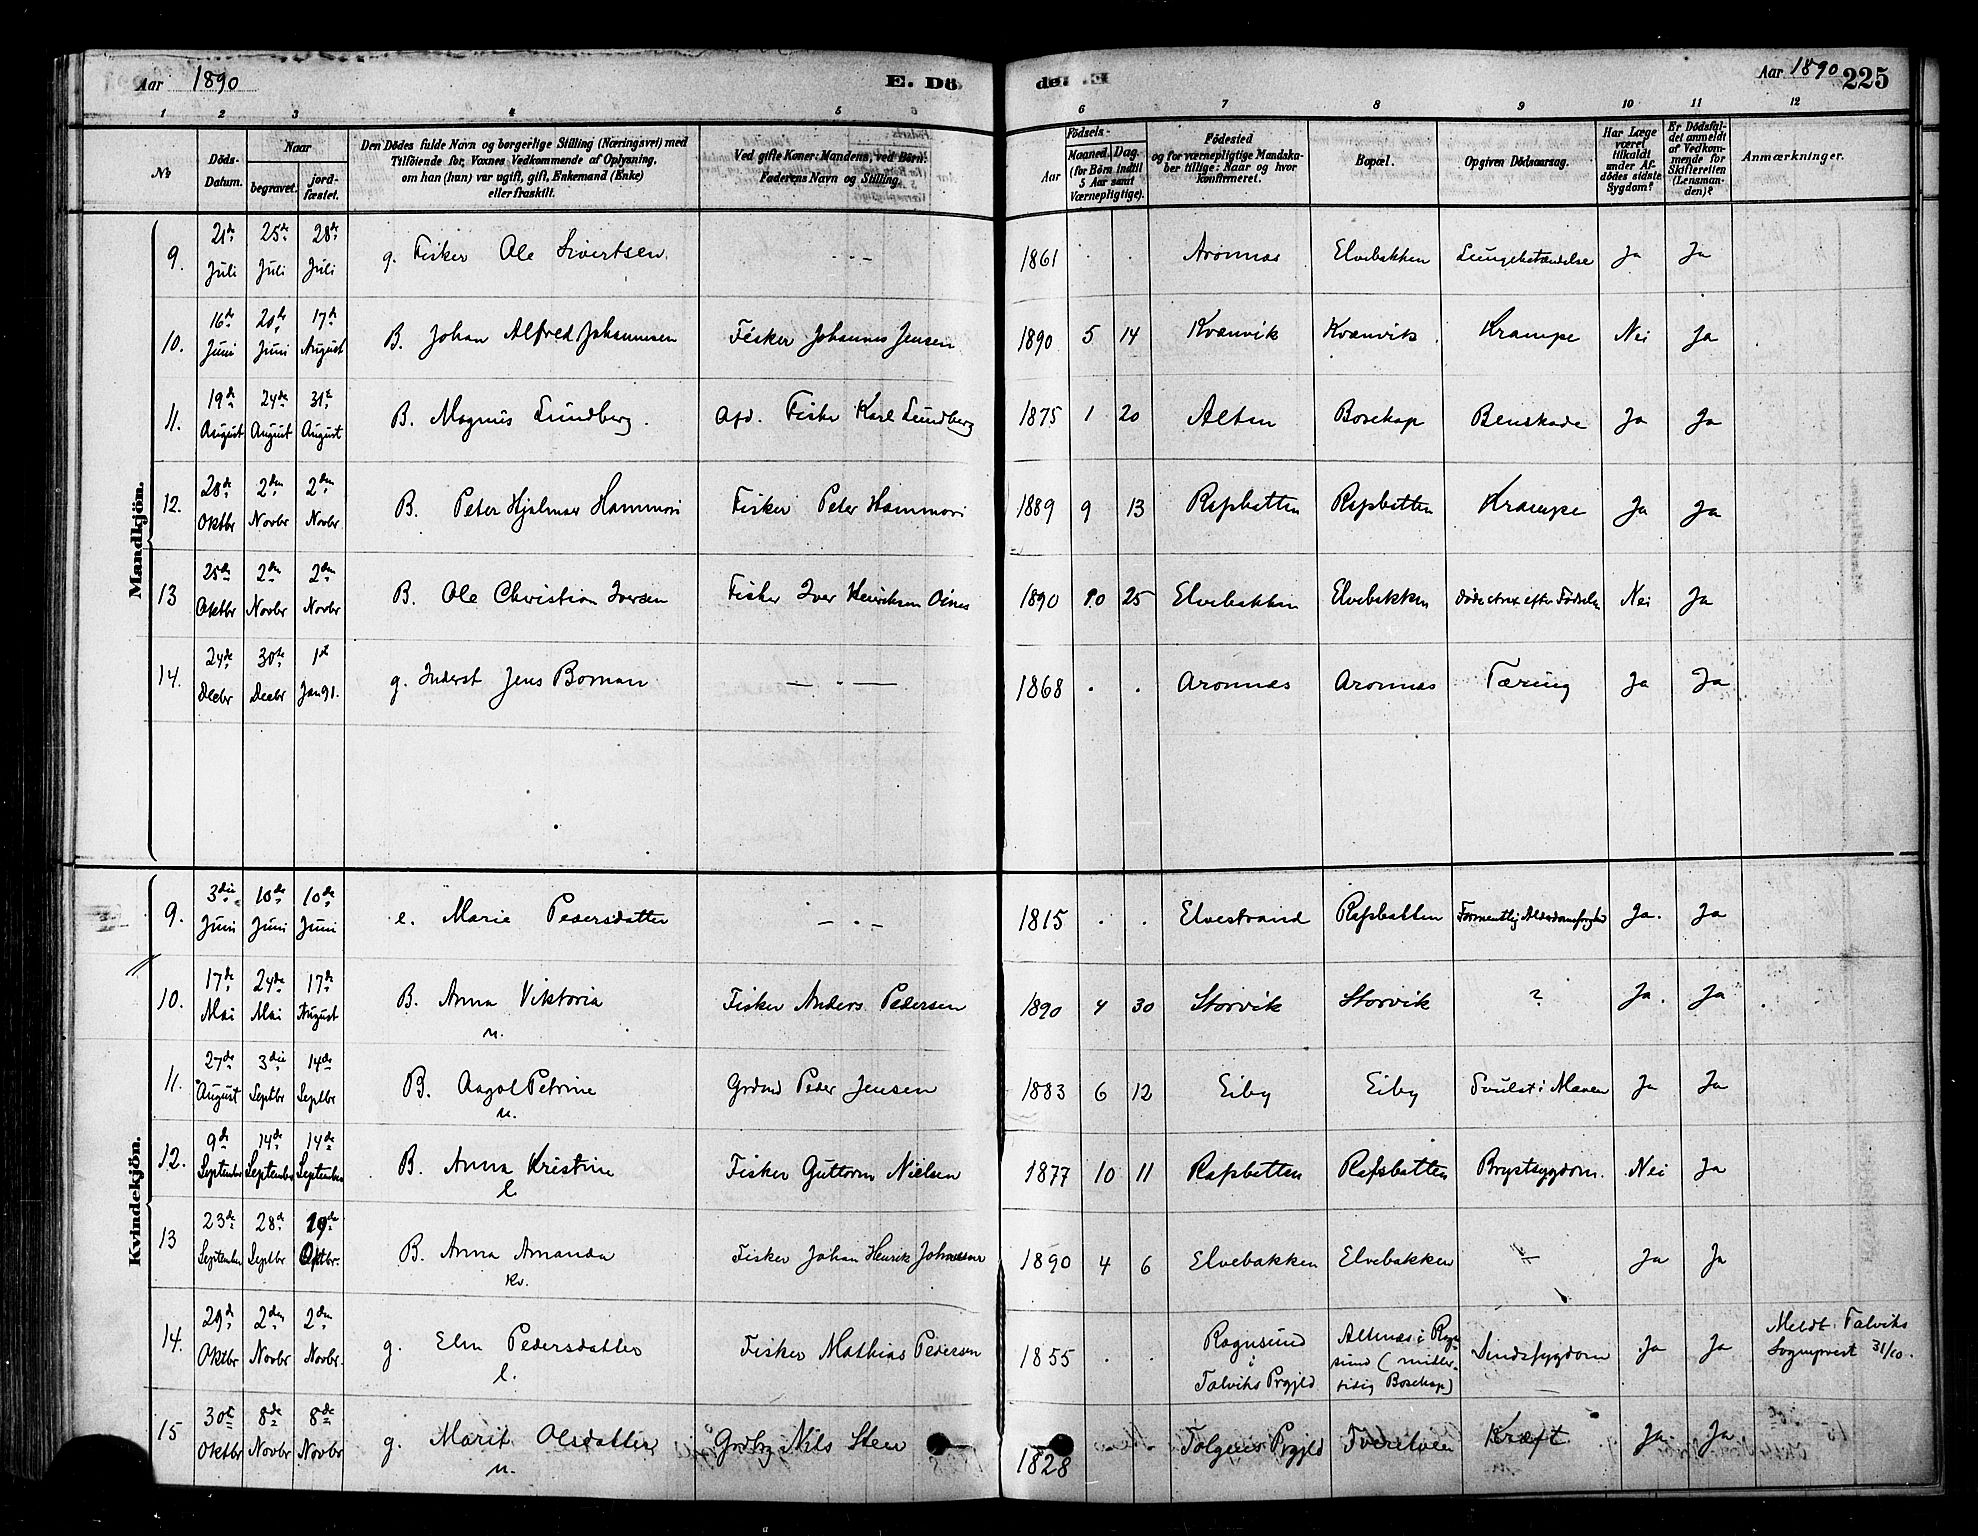 Aar 1890 E. Dö de. Aar 1890 225
1 2 3 4 5 6 7 8 9 10 11 12
№ Döds-Datum. Naar begravet. jord-fæstet. Den Dödes fulde Navn og borgerlige Stilling (Næringsvei) med Tilföiende for, Voxnes Vedkommende af Oplysning, om han (hun) var ugift, gift, Enkemand (Enke) eller fraskilt. Ved gifte Koner: Mandens, ved Börn: Faderens Navn og Stilling. Födsels- Aar Maaned, Dag. (for Börn indtil 5 Aar samt Værnepligtige). Födested og for værnepligtige Mandskaber tillige: Naar og hvor konfirmeret. Bopæl. Opgiven Dödsaarsag. Har Læge været tilkaldt under Afdödes sidste Sygdom? Er Dödsfaldet anmeldt af Vedkommende for Skifteretten (Lensmanden)? Anmærkninger.
Mandkjön.
9. 21de Juli 25de Juli 28de Juli g. Fisker Ole Sivertsen - - - 1861 . . Aronnæs Elvebakken Lungebetændelse Ja Ja
10. 16de Juni 20de Juni 17de August B. Johan Alfred Johannesen Fisker Johannes Jensen 1890 5 14 Kvænvik Kvænvik Krampe Nei Ja
11. 19de August 24de August 31te August B. Magnus Lundberg. Afd. Fisker Karl Lundberg 1875 1 20 Alten Bosekop Benskade Ja Ja
12. 28de Oktbr 2den Novbr 2den Novbr B. Peter Hjalmar Hammari Fisker Peter Hammari 1889 9 13 Rafsbotten Rafsbotten Krampe Ja Ja
13 25de Oktbr 2den Novbr 2den Novbr B. Ole Christian Iversen Fisker Iver Henriksen Oinas 1890 10 25 Elvebakken Elvebakken Døde strax efter Fødselen Nei Ja
14. 24de Decbr 30te Decbr 1ste Jan 91. g. Inderst Jens Boman — - — 1868 . . Aronnæs Aronnæs Tæring Ja Ja
Kvindekjön.
9. 3die Juni 10de Juni 10de Juni e. Marie Pedersdatter - - - 1815 . . Elvestrand Rafsbotten Formentlig Alderdomssvaghed Ja. Ja
10. 17de Mai 24de Mai 17de August B. Anna Viktoria Fisker Anders Pedersen 1890 4 30 Storvik Storvik ? Ja. Ja
n.
11. 27de August 3die Septbr 14de Septbr B. Aagot Petrine Grdmd Peder Jensen 1883 6 12 Eiby Eiby Svulst i Maven Ja Ja
n.
12. 9de September 14de September 14de September B. Anna Kristine Fisker Guttorm Nielsen 1877 10 11 Rafsbotten Rafsbotten Brystsygdom. Nei Ja
l
13 23de September 28de Septbr 19de Oktbr. B. Anna Amanda Fisker Johan Henrik Johannesen 1890 4 6 Elvebakken Elvebakken Ja Ja
Kv.
14. 29de Oktbr 2den Novbr 2den Novbr. g. Elen Pedersdatter Fisker Mathias Pedersen 1855 . . Rognsund i Talviks Prgjld Altenæs i Rognsund (midlertidig Bosekop) Sindssygdom Ja Ja Meldt Talviks Sognprest 31/10.
l.
15 30te Oktbr 8de Novbr 8de Novbr g. Marit Olsdatter Grdbr Nils Steen 1828 Tolgens Prgjld Tverelven Kræft Ja Ja
n.